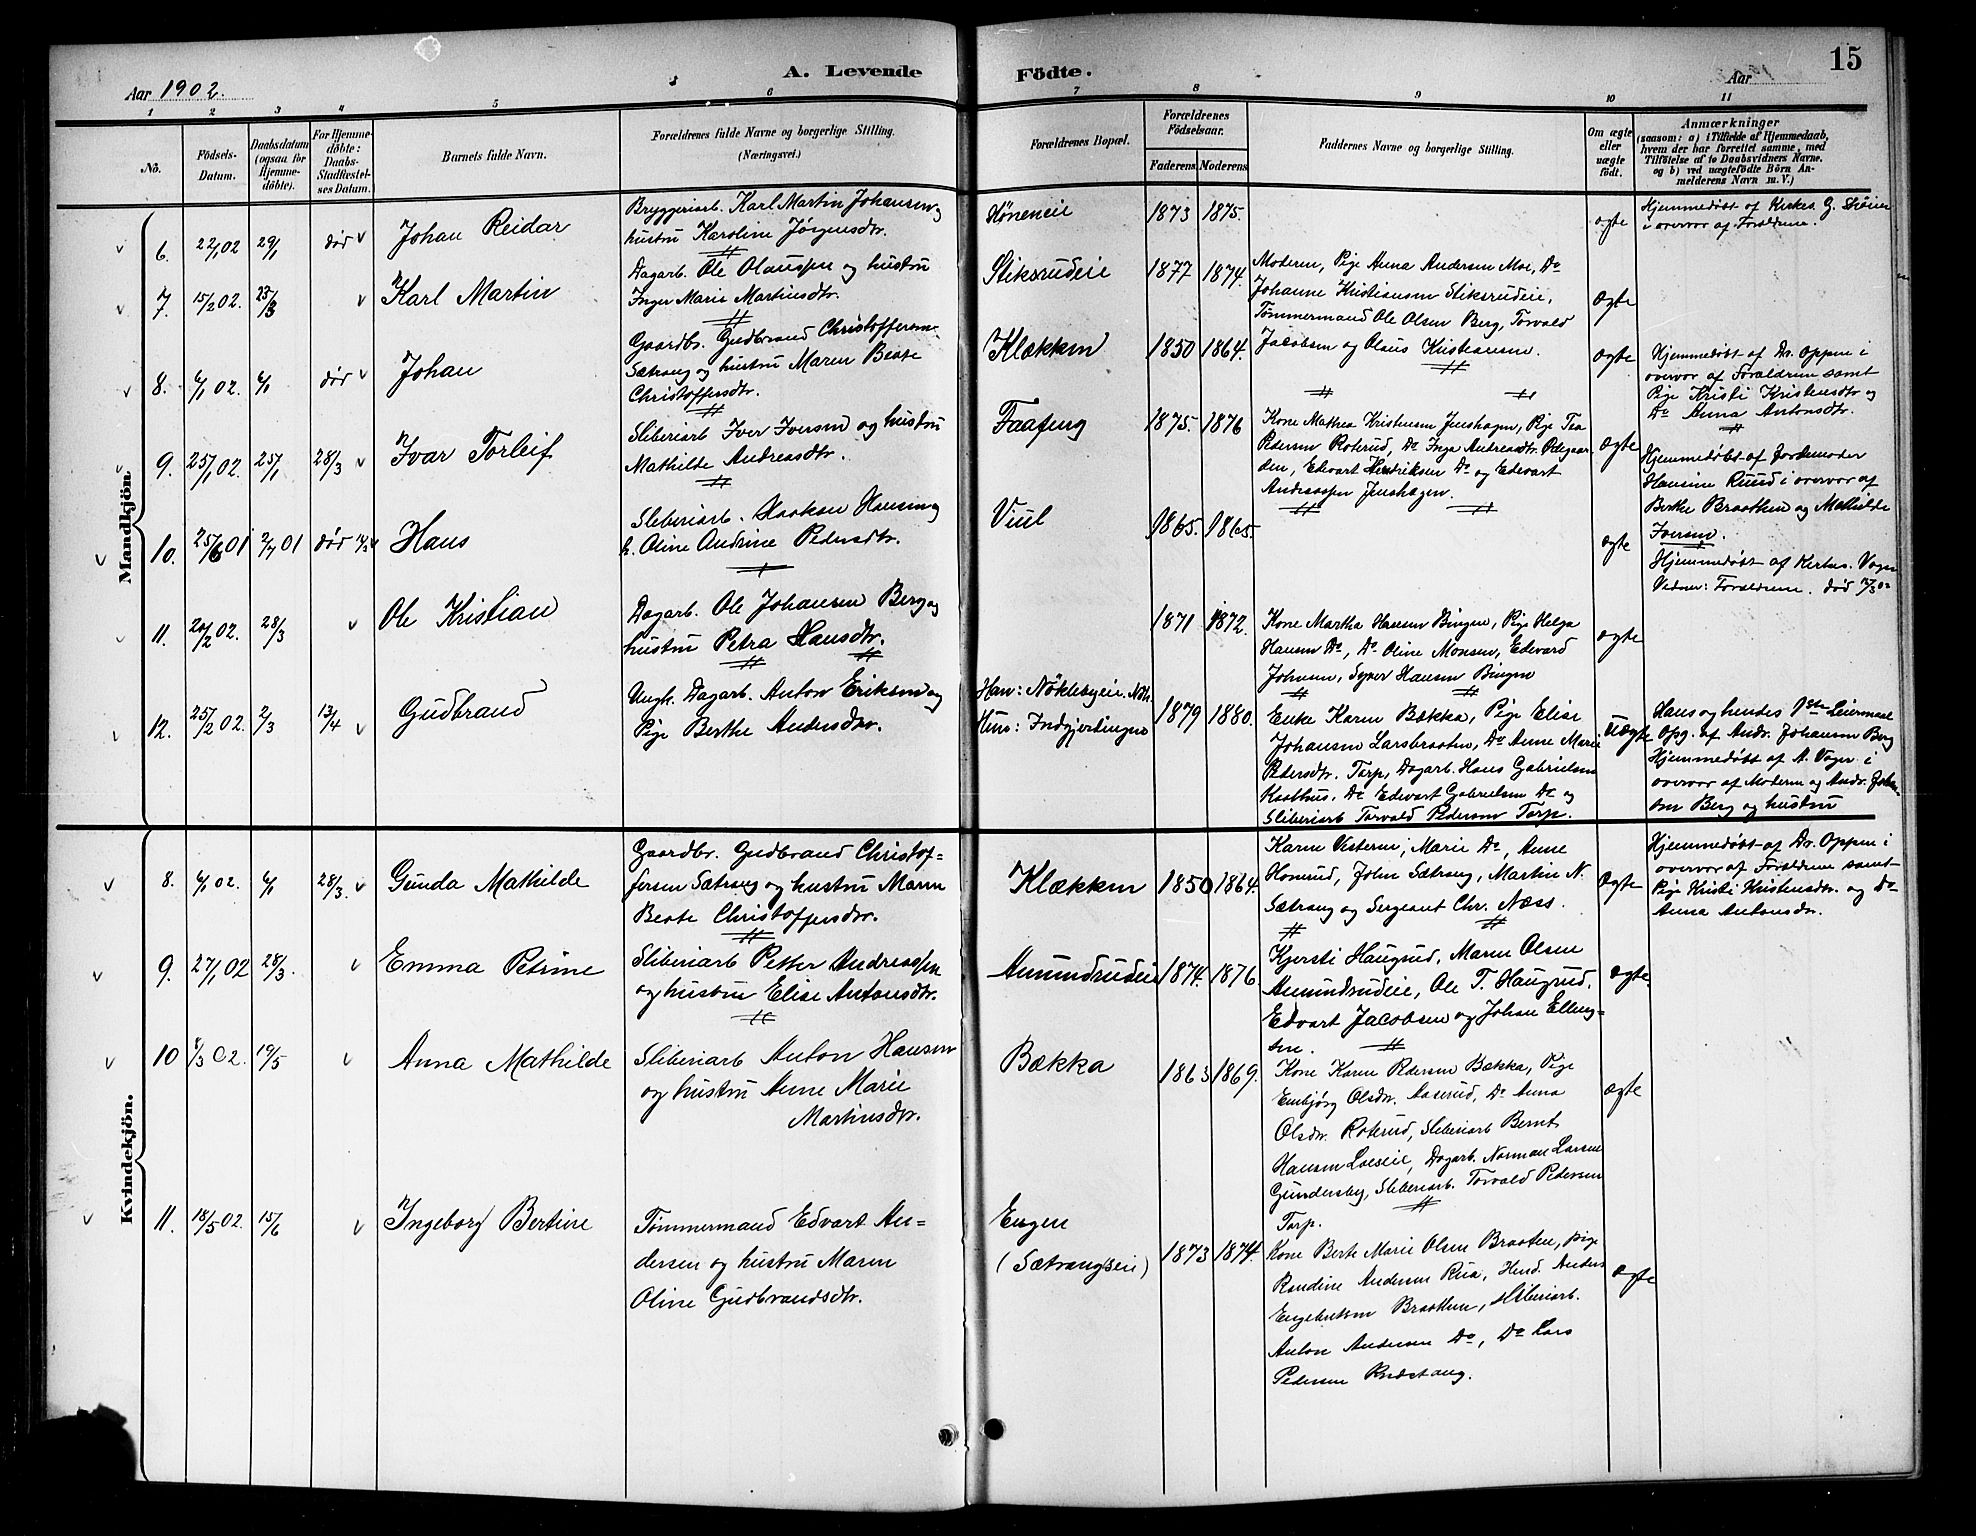 15
A. Levende Födte.
Aar 1902.
Aar
1 2 3 4 5 6 7 8 9 10 11
No.
Födsels-Datum.
Daabsdatum (ogsaa for Hjemmedöbte).
For Hjemmedöbte: Daabs-Stadfæstelses Datum.
Barnets fulde Navn.
Forældrenes fulde Navne og borgerlige Stilling.
(Næringsvei.)
Forældrenes Bopæl.
Forældrenes Födselsaar.
Faderens Moderens
Faddernes Navne og borgerlige Stilling.
Om ægte eller uægte födt.
Anmærkninger
(saasom: a) i Tilfælde af Hjemmedaab,
hvem der har forrettet samme, med
Tilföielse af to Daabsvidners Navne.
og b) ved uægtefödte Börn Anmelderens Navn m. V.)
Mandkjön
6. 22/1 02 29/1 död Johan Reidar
Bryggeriarb. Karl Martin Johansen og
hustru Karoline Jörgensdtr.
Höneneie 1873 1875.
ægte
Hjemmedöbt af Kirkes. G.
i overvær af Forældrene.
7. 15/2 02. 23/3 Karl Martin
Dagarb. Ole Olaussen og hustru
Inger Marie Martinsdtr.
Stiksrudeie 1877 1874.
Moderen, Pige Anna Andersen Moe, Do
Johanne Kristiansen Stiksrudeie,
Tømmermand Ole Olsen Berg, Torvald
Jacobsen og Olaus Kristiansen.
ægte
8. 6/1 02. 6/1 död Johan
Gaardbr. Gudbrand Christoffersen
Sætrang og hustru Maren Beate
Christoffersdtr.
Klækken 1850 1864.
ægte
Hjemmedöbt af Dr. Oppen i
overvær af Forældrene samt
Pige Kristi Kristensdtr og
Do Anna Antonsdtr.
9. 25/1 02. 25/1 28/3 Ivar Torleif
Sliberiarb Iver Iversen og hustru
Mathilde Andreasdtr.
Faafeng 1875. 1876
Kone Mathea Kristensen Jenshagen, Pige Tea
Pedersen Roterud, Do Inga Andreasdtr. Ødegaarden,
Edvart Hendriksen Do og Edevart
Andreassen Jenshagen.
ægte
Hjemmedöbt af Jordemoder
Hansine Ruud i overvær af
Berthe Braathen og Mathilde
Iversen.
10. 25/6 01 2/7 01 död Hans
Sliberiarb. Haaken Hansen og
h. Oline Andrine Pedersdtr.
Viul 1865. 1865.
ægte
Hjemmedöbt af Kirkes. Vagn
Vidner: Forældrene. död
11. 20/2 02. 28/3 Ole Kristian
Dagarb. Ole Johansen Berg og
hustru Petra Hansdtr.
1871 1872.
Kone Martha Hansen Bingen, Pige Helga
Hansen Do, Do Oline Monsen, Edevard
Johnsen, Syver Hansen Bingen
ægte
12. 25/2 02. 2/3 13/4 Gudbrand
Ungk. Dagarb. Anton Eriksen og
Pige Berthe Andersdtr.
Han: Nöklebyeie.
Hun: Indgjerdingen
1879 1880.
Enke Karen Bækka, Pige Elise
Johansen Larsbraaten, Do Anne Marie
Pedersdtr. Torp, Dagarb. Hans Gabrielsen
Do Edevart Gabrielsen Do og
Sliberiarb Torvald Pedersen Torp.
uægte
Hans og hendes 1ste Leiermaal
Opg. af Andr. Johansen Berg
Hjemmedöbt af A. Vagn i
overvær af Moderen og Andr. Johansen
Berg og hustru
Kvindekjön.
8. 6/1 02. 6/1 28/3. Gunda Mathilde
Gaardbr. Gudbrand Christoffersen
Sætrang og hustru Maren
Beate Christoffersdtr.
Klækken 1850 1864.
Karen Vesteren, Marie Do, Anne
Honerud, John Sætrang, Martin N.
Sætrang og Sergeant Chr. Næss.
ægte
Hjemmedöbt af Dr. Oppen i
overvær af Forældrene samt
Pige Kristi Kristensdtr. og Do
Anna Antonsdtr.
9. 27/1 02 28/3. Emma Petrine
Sliberiarb Petter Andreassen
og hustru Elise Antonsdtr.
Amundrudeie 1874. 1876.
Kjersti Haugrud, Maren Olsen
Amundrudeie, Ole T. Haugrud,
Edvart Jacobsen og Johan Ellingsen.
ægte.
10 8/3 02. 19/5 Anna Mathilde
Sliberiarb Anton Hansen
og hustru Anne Marie
Martinsdtr.
Bækka 1863 1869.
Kone Karen Pedersen Bækka, Pige
Embjörg Olsdtr. Aaserud, Do Anna
Olsdtr. Roterud, Sliberiarb Bernt
Hansen Loeseie, Dagarb. Norman Larsen
Gundersby, Sliberiarb. Torvald Pedersen
Torp.
ægte
11. 18/5 02. 15/6 Ingeborg Bertine
Tömmermand Edvart Andersen
og hustru Maren
Oline Gudbrandsdtr.
Engen
(Sætrangseie) 1873 1874.
Kone Berte Marie Olsen Braaten, pige
Randine Andersen Rua, Hend. Anders
Engebretsen Braathen, Sliberiarb.
Anton Andersen Do, Do Lars
Pedersen
ægte